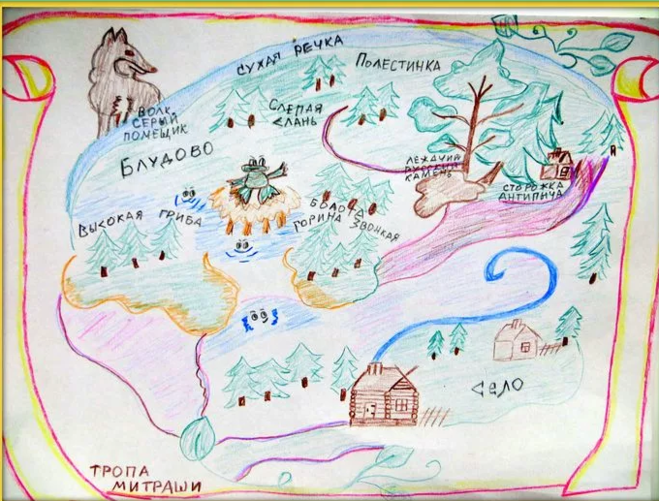 СУХАЯ РЕЧКА
ПОЛЕСТИНКА
ВОЛК
СЕРЫЙ
ПОМЕЩИК
СЛЕПАЯ
ЕЛАНЬ
БЛУДОВО
ЛЕЖАЧИЙ
КАМЕНЬ
СТОРОЖКА
АНТИПИЧА
БОЛОТО
ВЫСОКАЯ ГРИВА
БОРИНА ЗВОНКАЯ
СЕЛО
ТРОПА
МИТРАШИ